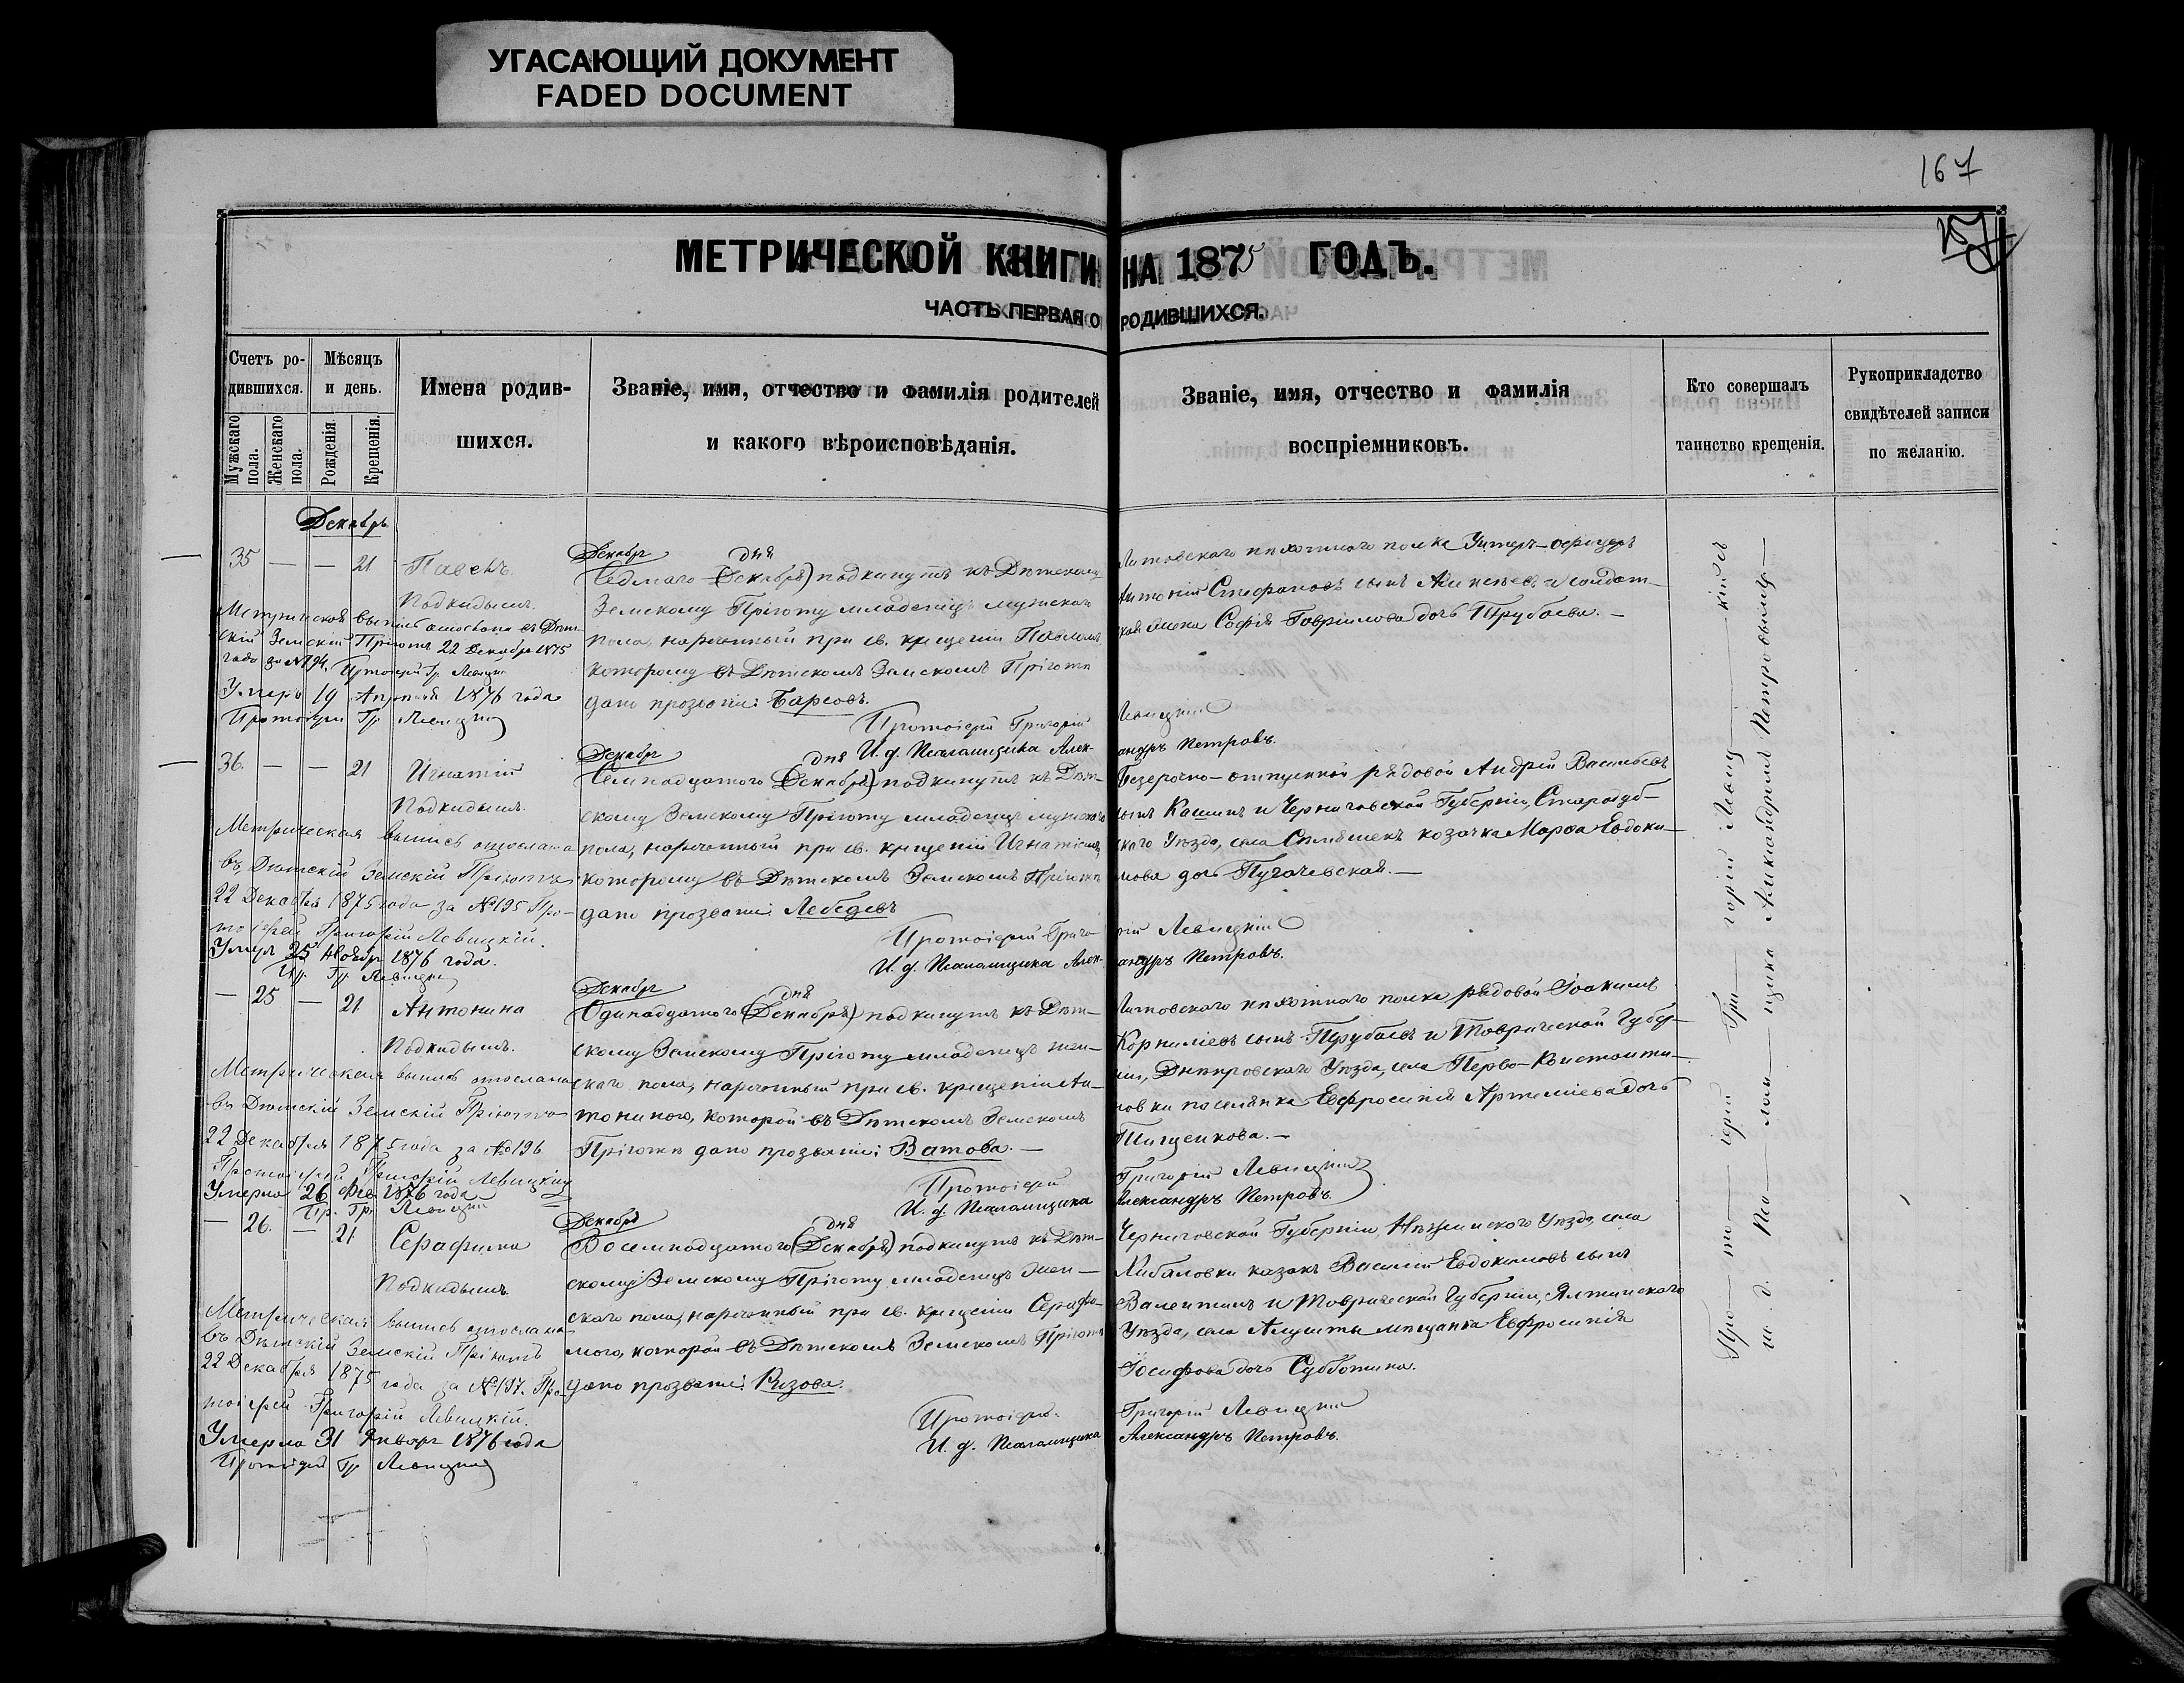 УГАСАЮЩИЙ ДОКУМЕНТ
FADED DOCUMENT
167
МЕТРИЧЕСКОЙ КНИГИ НА 1875 ГОДЪ.
ЧАСТЬ ПЕРВАЯ О РОДИВШИХСЯ.
Счетъ ро-
дившихся.
Мужскаго пола.
Женскаго пола.
Мѣсяцъ
и день.
Рожденія.
Крещенія.
Имена родив-
шихся.
Званіе, имя, отчество и фамилія родителей
и какого вѣроисповѣданія.
Званіе, имя, отчество и фамилія
воспріемниковъ.
Кто совершалъ
таинство крещенія.
Рукоприкладство
свидѣтелей записи
по желанію.
Декабрь
35 — — 21 Павелъ.
Подкидышъ.
Метрическая выпись отослана въ Дѣт-
скій Земскій Пріютъ 22 Декабря 1875
года за №194. Протоіерей Гр. Левицкій
Умеръ 19 Апрѣля 1876 года
Протоіерей Гр. Левицкій
Декабря дня
Седмаго (Декабря) подкинутъ къ Дѣтскому
Земскому Пріюту младенецъ мужскаго
пола, нареченный при св. крещеніи Павломъ,
которому въ Дѣтскомъ Земскомъ Пріютѣ
дано прозваніе: Барсовъ.
Протоіерей Григорій Левицкій
И. д. Псаломщика Александръ Петровъ.
Литовскаго пѣхотнаго полка Унтеръ-офицеръ
Антоній Стефановъ сынъ и солдат-
ская жена Софія Гавріилова дочь Трубаева. —
36. — — 21 Игнатій
Подкидышъ.
Метрическая выпись отослана
въ Дѣтскій Земскій Пріютъ
22 Декабря 1875 года за №195 Про-
тоіерей Григорій Левицкій.
Умеръ 25 Ноября 1876 года.
Пр. Гр. Левицкій
Декабря дня
Семнадцатаго (Декабря) подкинутъ къ Дѣт-
скому Земскому Пріюту младенецъ мужскаго
пола, нареченный при св. крещеніи Игнатіемъ,
которому въ Дѣтскомъ Земскомъ Пріютѣ
дано прозваніе Лебедевъ
Протоіерей Григорій Левицкій
И. д. Псаломщика Александръ Петровъ.
Безсрочно-отпускной рядовой Андрей Васильевъ
сынъ Кашинъ и Черниговской Губерніи, Стародуб-
скаго Уѣзда, села козачка Марѳа Евдоки-
мова дочь Пугачевская. —
— 25 — 21 Антонина
Подкидышъ.
Метрическая выпись отослана
въ Дѣтскій Земскій Пріютъ
22 Декабря 1875 года за №196
Протоіерей Григорій Левицкій
Умерла 26 Фев. 1876 года
Пр. Гр. Левицкій
Декабря дня
Одинадцатаго (Декабря) подкинутъ къ Дѣт-
скому Земскому Пріюту младенецъ жен-
скаго пола, нареченный при св. крещеніи Ан-
тониною, которой въ Дѣтскомъ Земскомъ
Пріютѣ дано прозваніе: Ватова. —
Протоіерей Григорій Левицкій
И. д. Псаломщика Александръ Петровъ.
Литовскаго пѣхотнаго полка рядовой Іоакимъ
Корниліевъ сынъ Трубаевъ и Таврической Губер-
ніи, Днѣпровскаго Уѣзда, села Перво-Константи-
новки поселянка Евфросинія Артеміева дочь
Тищенкова. —
— 26. — 21 Серафима
Подкидышъ.
Метрическая выпись отослана
въ Дѣтскій Земскій Пріютъ
22 Декабря 1875 года за №197. Про-
тоіерей Григорій Левицкій.
Умерла 31 Января 1876 года
Протоіерей Гр Левицкій
Декабря дня
Восемнадцатаго (Декабря) подкинутъ къ Дѣт-
скому Земскому Пріюту младенецъ жен-
скаго пола, нареченный при св. крещеніи Серафи-
мою, которой въ Дѣтскомъ Земскомъ Пріютѣ
дано прозваніе: Ризова.
Протоіерей Григорій Левицкій
И. д. Псаломщика Александръ Петровъ.
Черниговской Губерніи, Нѣжинскаго Уѣзда, села
казакъ Василій Евдокимовъ сынъ
Валентинъ и Таврической Губерніи, Ялтинскаго
Уѣзда, села Алушты мѣщанка Евфросинія
Іосифова дочь Субботина.
Про— то— іерей Гри— горій Левиц— кій съ
и. д. Пса— лом— щика Александромъ Петровымъ —